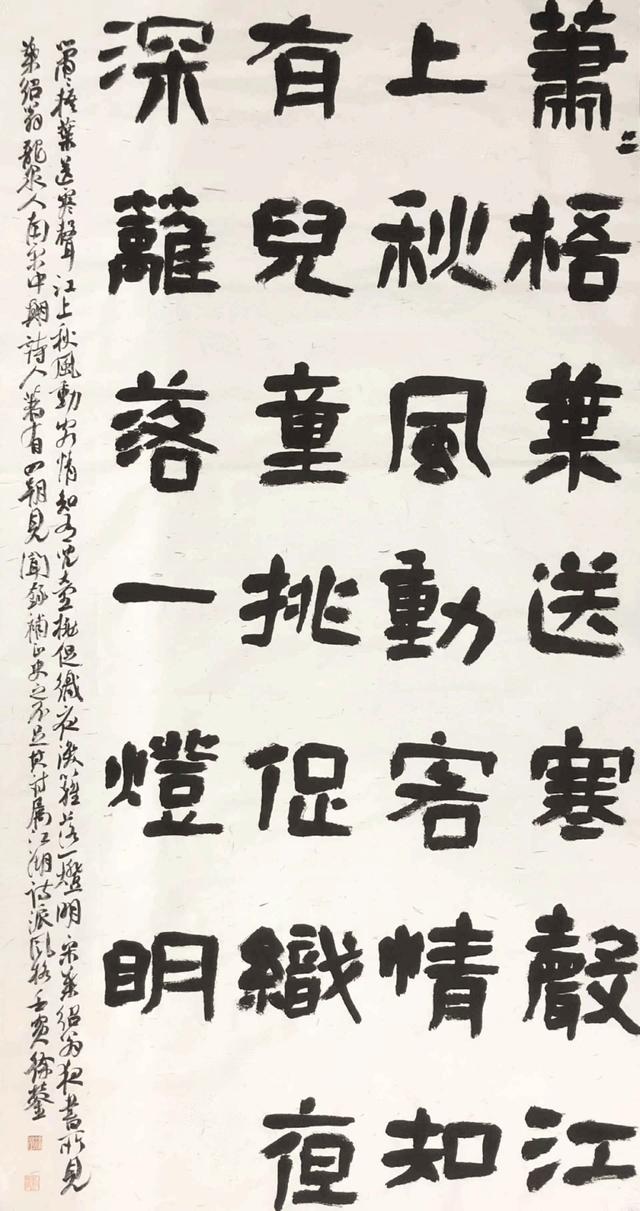 蕭〻梧葉送寒聲江
上秋風動客情知
有兒童挑促織夜
深籬落一燈明
蕭〻梧葉送寒聲江上秋風動客情知有兒童挑促織夜深籬落一燈明宋葉紹翁夜書所見
葉紹翁龍泉人南宋中期詩人著有四朝見聞錄補正史之不足其詩屬江湖詩派風格壬寅徐